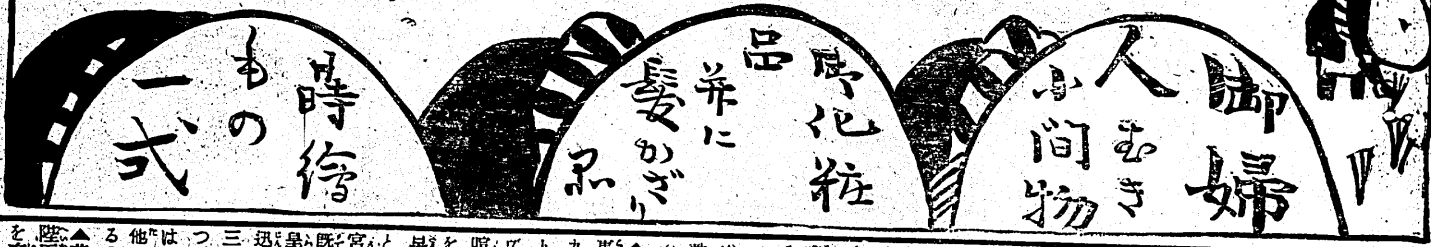 御婦
人むき
小間物
御化粧
品
并に
髪かざり
品
時繪
もの
一式